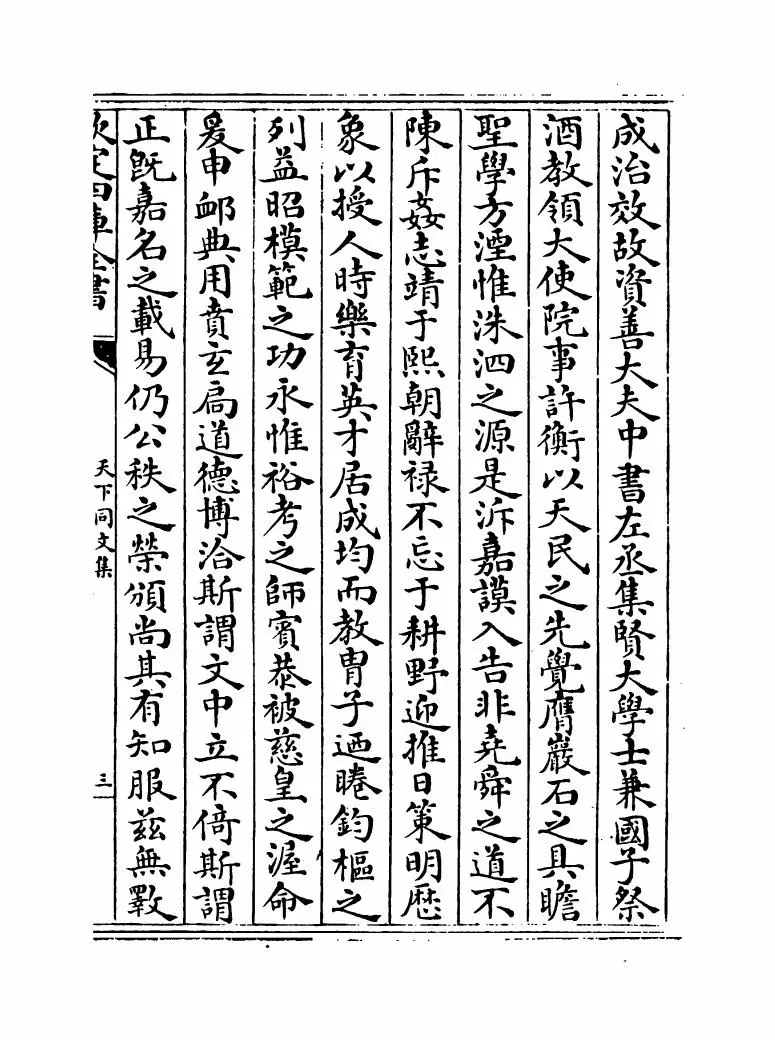 成治效故資善大夫中書左丞集賢大學士兼國子祭
酒教領大使院事許衡以天民之先覺膺巖石之具瞻
聖學方湮惟洙泗之源是泝嘉謨入告非堯舜之道不
陳斥姦志靖于熙朝辭禄不忘于耕野迎推日策明厯
象以授人時樂育英才居成均而教胄子迺睠鈞樞之
列益昭模範之功永惟裕考之師賓恭被慈皇之渥命
爰申衈典用賁玄扃道德博洽斯謂文中立不倚斯謂
正既嘉名之載易仍公秩之榮頒尚其有知服兹無斁
欽定四庫全書
天下同文集
三